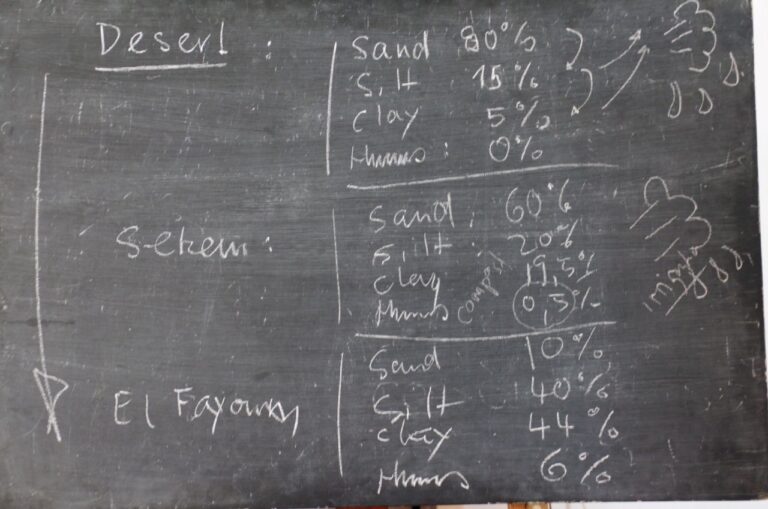 Desert :
Sand 80%
Silt 15%
Clay 5%
Humus : 0%
Sekem :
Sand : 60%
Silt : 20%
Clay 19,5%
Humus Compost 0,5%
irrigation
El Fayoum
Sand 10%
Silt 40%
Clay 44%
Humus 6%